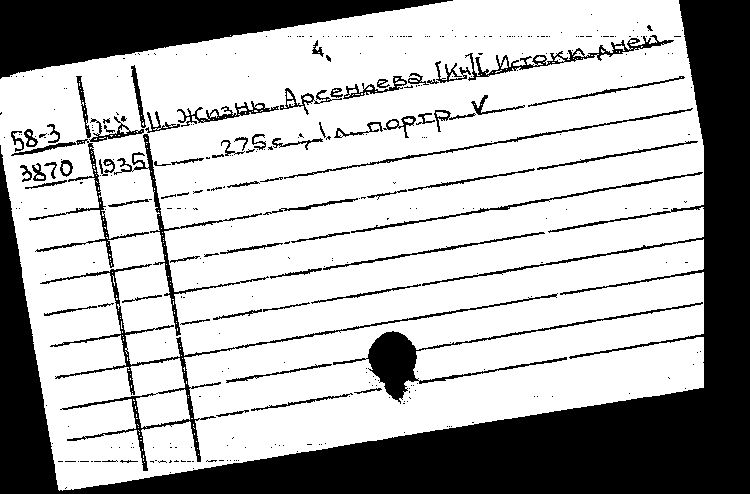 4.
58-3 11. Жизнь Арсеньева [Кн]I Истоки дней
3870 1935 275с.; 1л. портр ✓